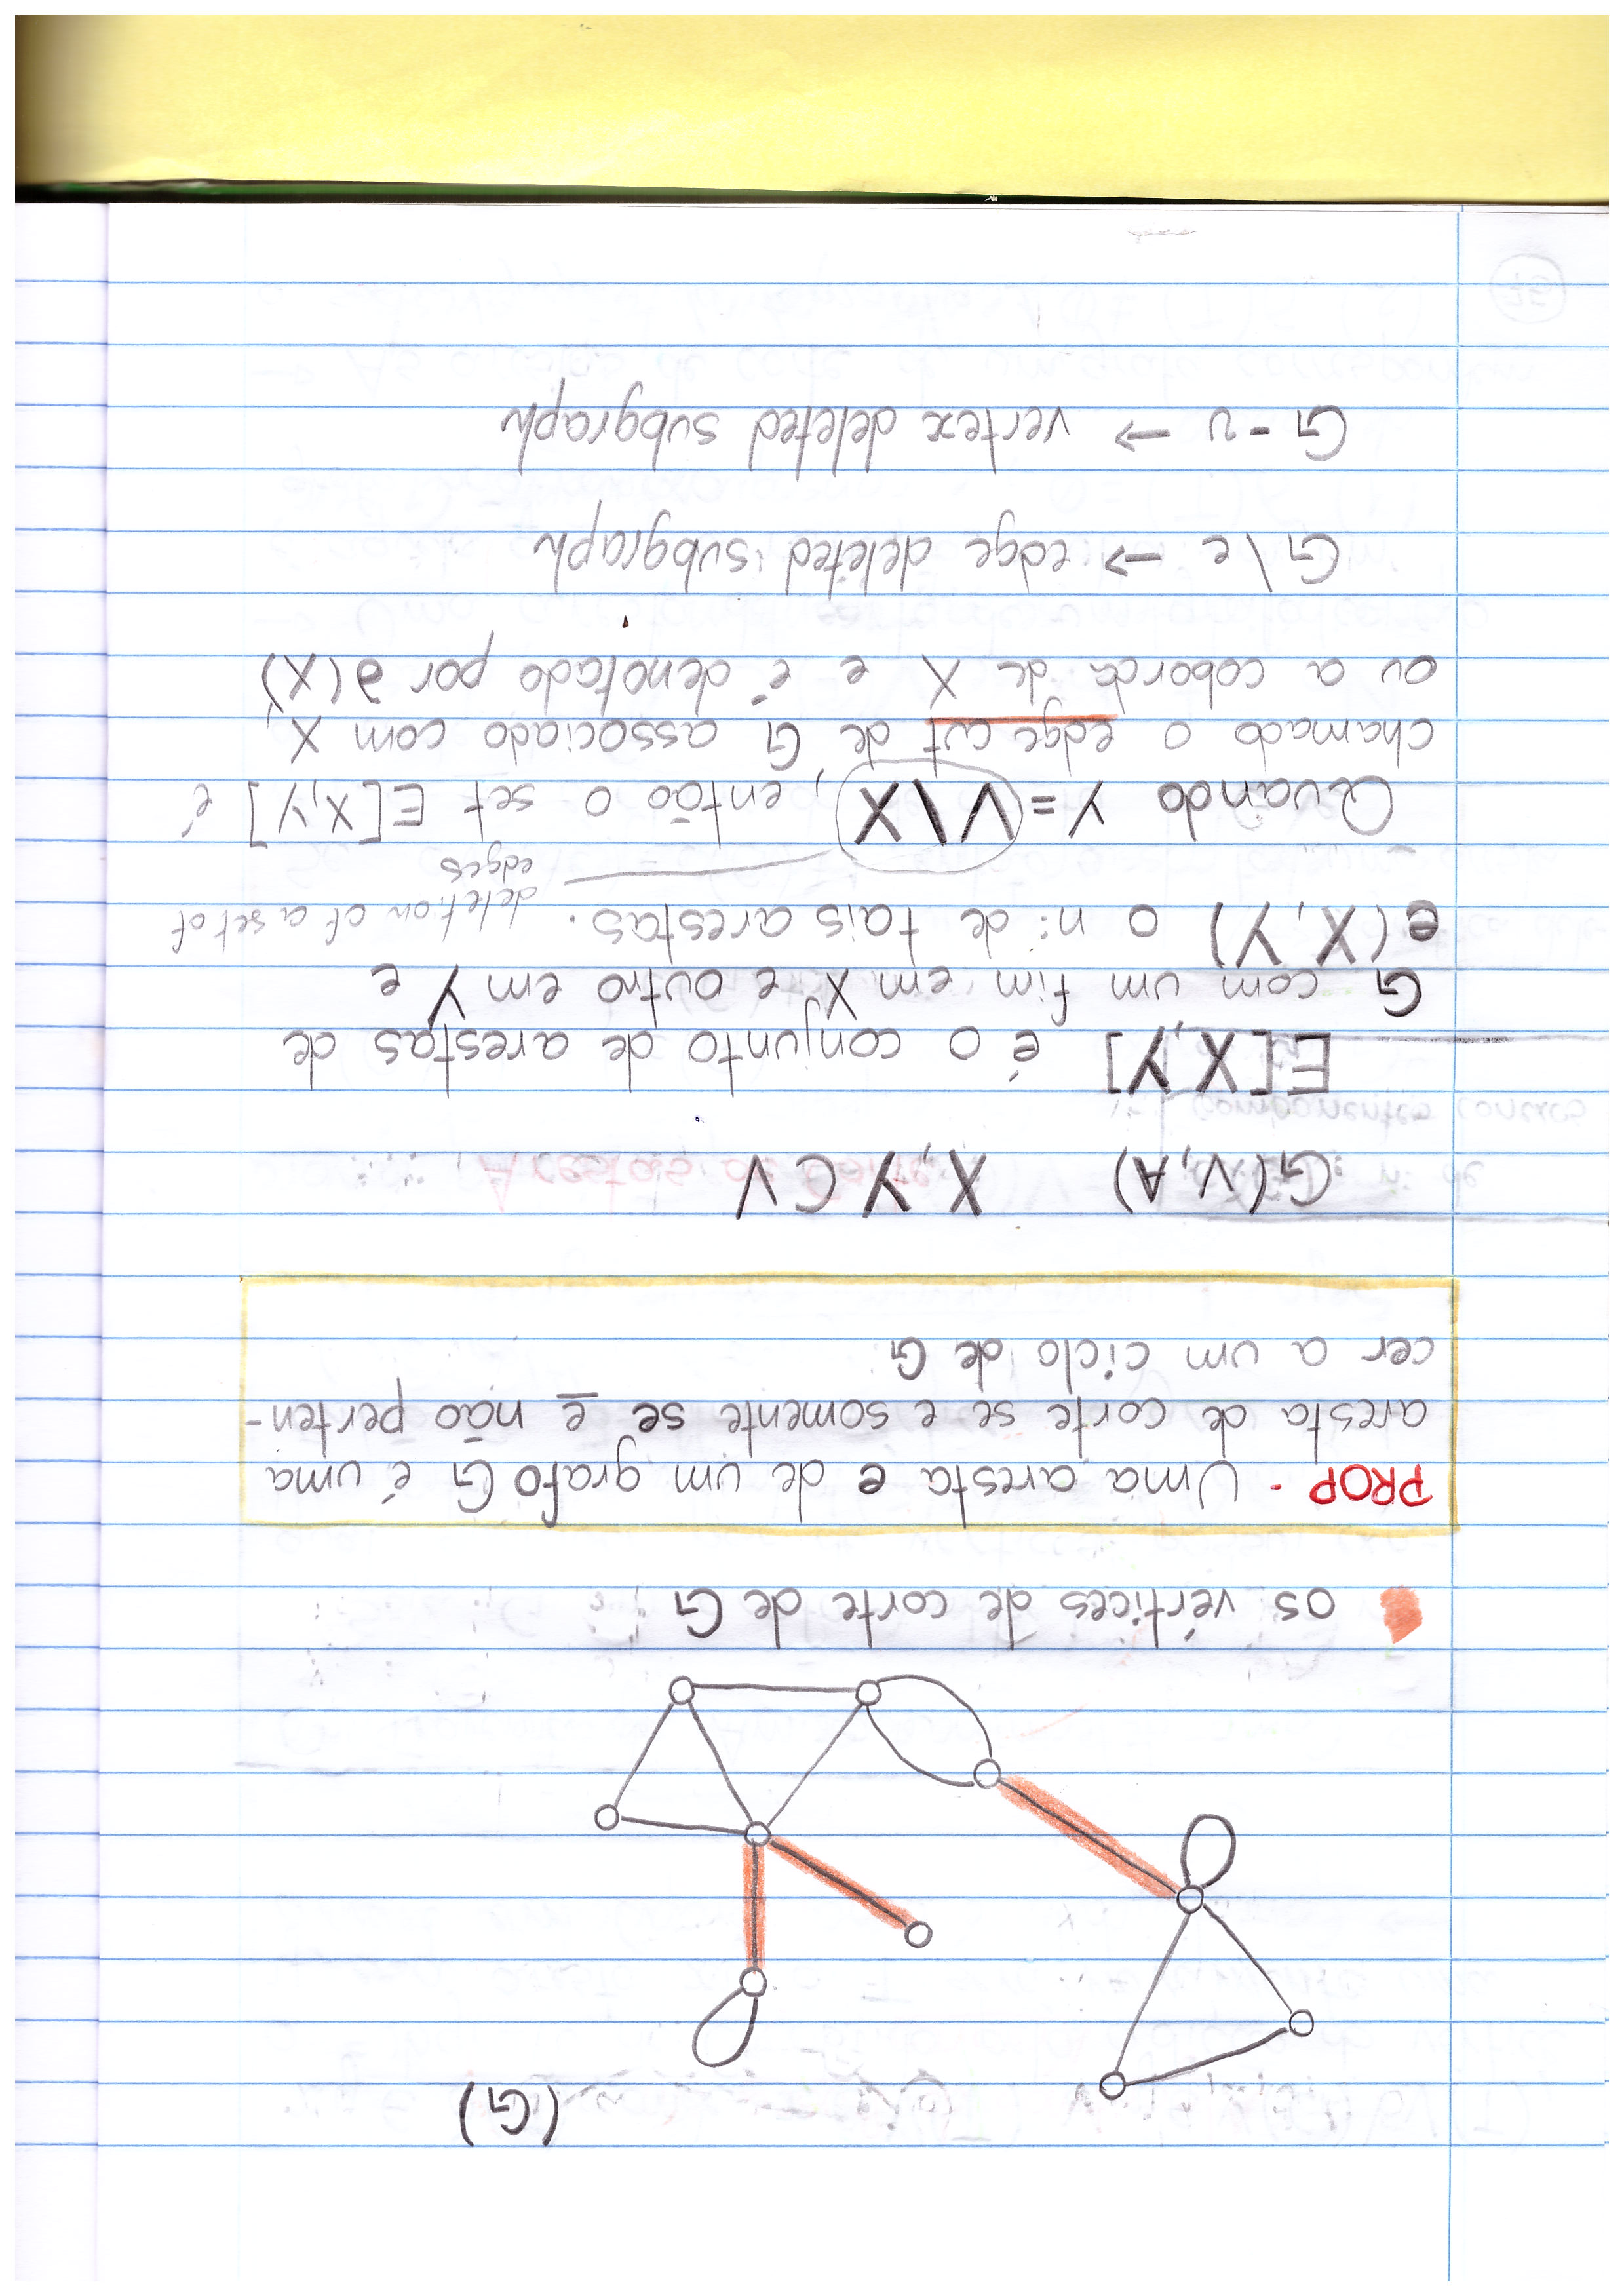 (G)
os vértices de corte de G
PROP - Uma aresta e de um grafo G é uma
aresta de corte se e somente se e não perten-
cer a um ciclo de G
G(V,A) X,Y ⊂ V
E[X,Y] é o conjunto de arestas de
G com um fim em X e outro em Y e
e(X,Y) o n: de tais arestas.
deletion of a set of
edges
Quando Y = V\X, então o set E[X,Y] é
chamado o edge cut de G associado com X,
ou a coborda de X e é denotado por ∂(X)
G\e → edge deleted subgraph
G-v → vertex deleted subgraph